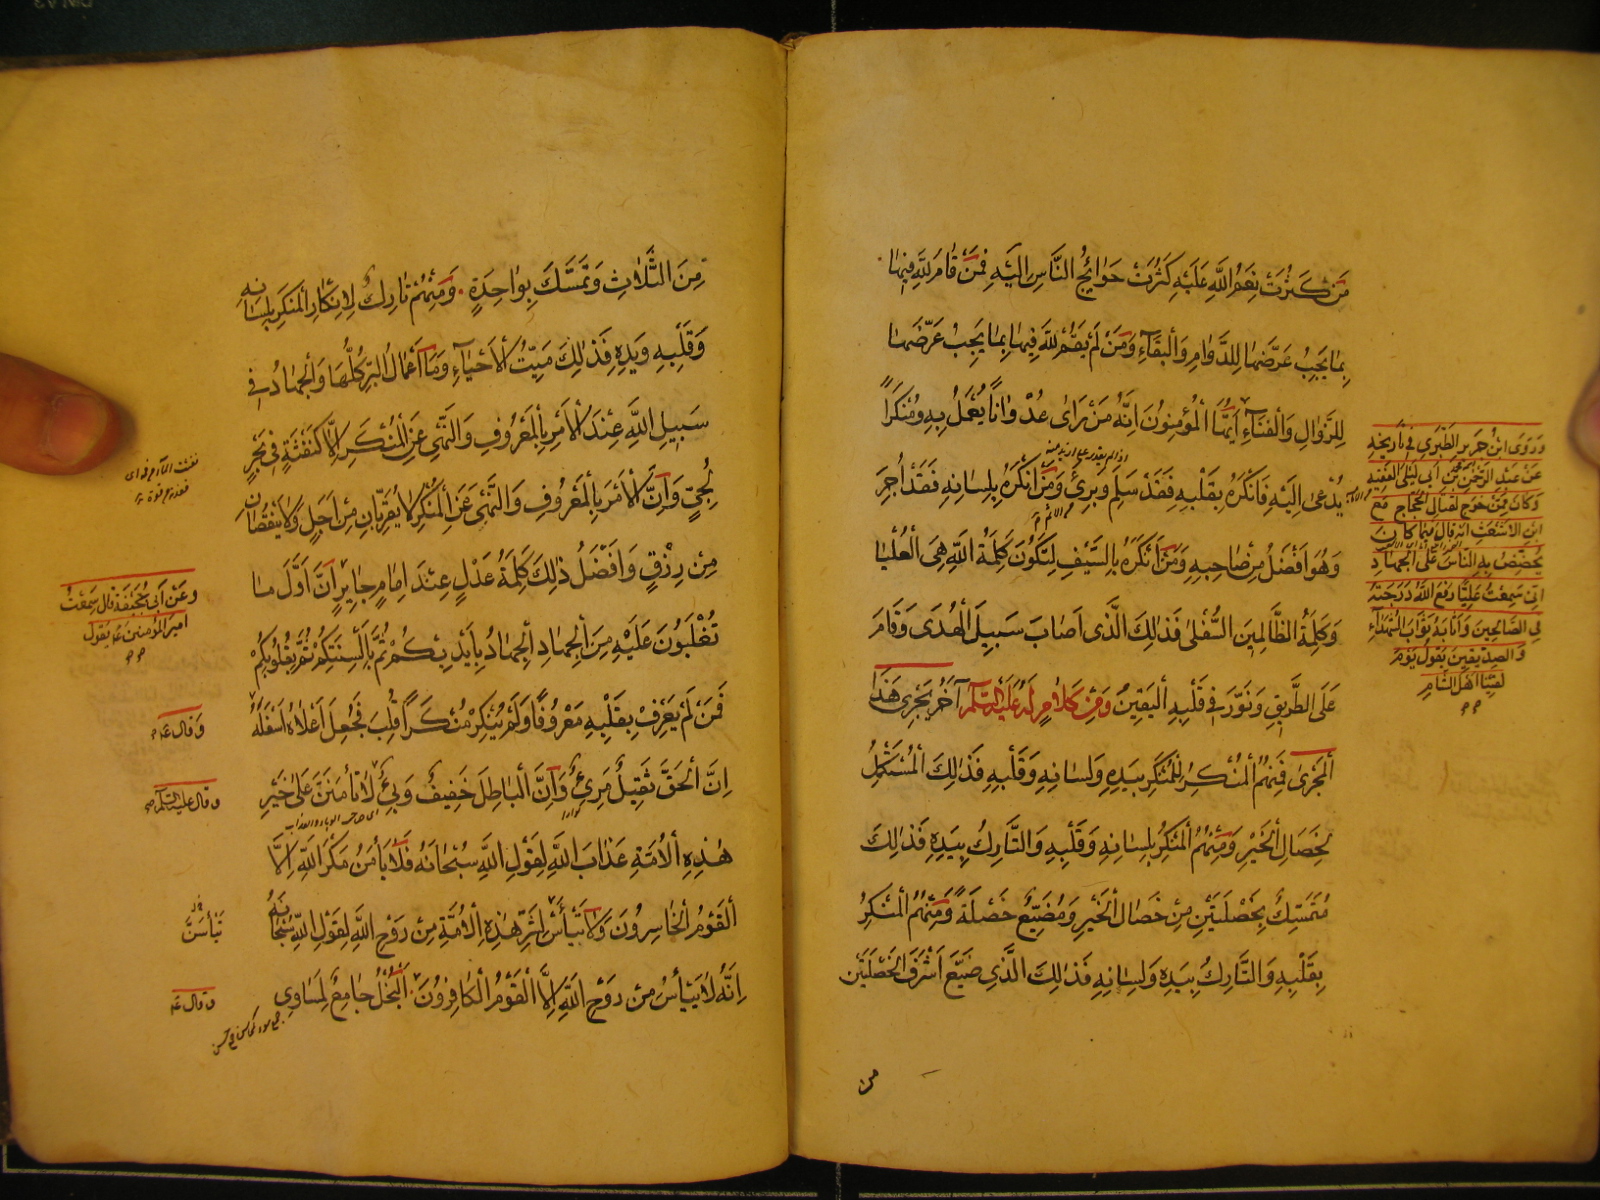 مَنْ كَثُرَتْ نِعَمُ اللّٰهِ عَلَيْهِ كَثُرَتْ حَوَائِجُ النَّاسِ اِلَيْهِ فَمَنْ قَامَ لِلّٰهِ فِيهَا
بِمَا يَجِبُ عَرَّضَهَا لِلدَّوَامِ وَالْبَقَاءِ وَمَنْ لَمْ يَقُمْ لِلّٰهِ فِيهَا بِمَا يَجِبُ عَرَّضَهَا
لِلزَّوَالِ وَالْفَنَاءِ اَيُّهَا الْمُؤْمِنُونَ اِنَّهُ مَنْ رَاٰى عُدْوَانًا يُعْمَلُ بِهِ وَمُنْكَرًا
يُدْعٰى اِلَيْهِ فَاَنْكَرَهُ بِقَلْبِهِ فَقَدْ سَلِمَ وَبَرِئَ وَمَنْ اَنْكَرَهُ بِلِسَانِهِ فَقَدْ اُجِرَ
وَهُوَ اَفْضَلُ مِنْ صَاحِبِهِ وَمَنْ اَنْكَرَهُ بِالسَّيْفِ لِتَكُونَ كَلِمَةُ اللّٰهِ هِيَ الْعُلْيَا
وَكَلِمَةُ الظَّالِمِينَ السُّفْلٰى فَذٰلِكَ الَّذِى اَصَابَ سَبِيلَ الْهُدٰى وَقَامَ
عَلَى الطَّرِيقِ وَنَوَّرَ فِى قَلْبِهِ الْيَقِينُ وَمِنْ كَلَامٍ لَهُ عَلَيْهِ السَّلَام آخَرُ يَجْرِى هٰذَا
الْمَجْرٰى فَمِنْهُمُ الْمُنْكِرُ لِلْمُنْكَرِ بِيَدِهِ وَلِسَانِهِ وَقَلْبِهِ فَذٰلِكَ الْمُسْتَكْمِلُ
لِخِصَالِ الْخَيْرِ وَمِنْهُمُ الْمُنْكِرُ بِلِسَانِهِ وَقَلْبِهِ وَالتَّارِكُ بِيَدِهِ فَذٰلِكَ
مُتَمَسِّكٌ بِخَصْلَتَيْنِ مِنْ خِصَالِ الْخَيْرِ وَمُضَيِّعٌ خَصْلَةً وَمِنْهُمُ الْمُنْكِرُ
بِقَلْبِهِ وَالتَّارِكُ بِيَدِهِ وَلِسَانِهِ فَذٰلِكَ الَّذِى ضَيَّعَ اَشْرَفَ الْخَصْلَتَيْنِ
من
وَرَوَى ابْنُ جَرِيرٍ الطَّبَرِي فِي تَارِيخِهِ
عَنْ عَبْدِ الرَّحْمٰنِ بْنِ اَبِي لَيْلَى الْفَقِيهِ
وَكَانَ مِمَّنْ خَرَجَ لِقِتَالِ الْحَجَّاجِ مَعَ
ابْنِ الْاَشْعَثِ اَنَّهُ قَالَ فِيمَا كَانَ
يُحَضِّضُ بِهِ النَّاسَ عَلَى الْجِهَادِ
اِنِّي سَمِعْتُ عَلِيًّا رَفَعَ اللّٰهُ دَرَجَتَهُ
فِي الصَّالِحِينَ وَاَثَابَهُ ثَوَابَ الشُّهَدَاءِ
وَالصِّدِّيقِينَ يَقُولُ يَوْمَ
لَقِينَا اَهْلَ الشَّامِ
مِنَ الثَّلَاثِ وَتَمَسَّكَ بِوَاحِدَةٍ وَمِنْهُمْ تَارِكٌ لِاِنْكَارِ الْمُنْكَرِ بِلِسَانِهِ
وَقَلْبِهِ وَيَدِهِ فَذٰلِكَ مَيِّتُ الْاَحْيَاءِ وَمَا اَعْمَالُ الْبِرِّ كُلُّهَا وَالْجِهَادُ فِى
سَبِيلِ اللّٰهِ عِنْدَ الْاَمْرِ بِالْمَعْرُوفِ وَالنَّهْىِ عَنِ الْمُنْكَرِ اِلَّا كَنَفْثَةٍ فِى بَحْرٍ
لُجِّىٍّ وَاِنَّ الْاَمْرَ بِالْمَعْرُوفِ وَالنَّهْىَ عَنِ الْمُنْكَرِ لَا يُقَرِّبَانِ مِنْ اَجَلٍ وَلَا يَنْقُصَانِ
مِنْ رِزْقٍ وَاَفْضَلُ ذٰلِكَ كَلِمَةُ عَدْلٍ عِنْدَ اِمَامٍ جَايِرٍ اِنَّ اَوَّلَ مَا
تُغْلَبُونَ عَلَيْهِ مِنَ الْجِهَادِ الْجِهَادُ بِاَيْدِيكُمْ ثُمَّ بِاَلْسِنَتِكُمْ ثُمَّ بِقُلُوبِكُمْ
فَمَنْ لَمْ يَعْرِفْ بِقَلْبِهِ مَعْرُوفًا وَلَمْ يُنْكِرْ مُنْكَرًا قُلِبَ فَجُعِلَ اَعْلَاهُ اَسْفَلَهُ
اِنَّ الْحَقَّ ثَقِيلٌ مَرِئٌ وَاِنَّ الْبَاطِلَ خَفِيفٌ وَبِئٌ لَا تَأْمَنَنَّ عَلٰى خَيْرِ
هٰذِهِ الْاُمَّةِ عَذَابَ اللّٰهِ لِقَوْلِ اللّٰهِ سُبْحَانَهُ فَلَا يَأْمَنُ مَكْرَ اللّٰهِ اِلَّا
الْقَوْمُ الْخَاسِرُونَ وَلَا تَيْأَسْ لِشَرِّ هٰذِهِ الْاُمَّةِ مِنْ رَوْحِ اللّٰهِ لِقَوْلِ اللّٰهِ سُبْحَانَهُ
اِنَّهُ لَا يَيْأَسُ مِنْ رَوْحِ اللّٰهِ اِلَّا الْقَوْمُ الْكَافِرُونَ الْبُخْلُ جَامِعٌ لِمَسَاوِى
وَعَنْ اَبِي جُحَيْفَةَ قَالَ سَمِعْتُ
اَمِيرَ الْمُؤْمِنِينَ ع يَقُولُ
وَقَالَ ع
وقال عليه السلام
تَيْأَسَنَّ
وقال ع